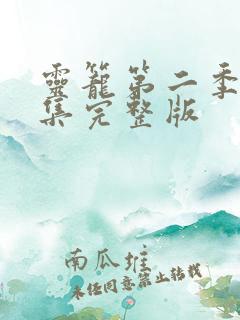 靈籠第二季
集完整版
南瓜堆
未经同意禁止转载